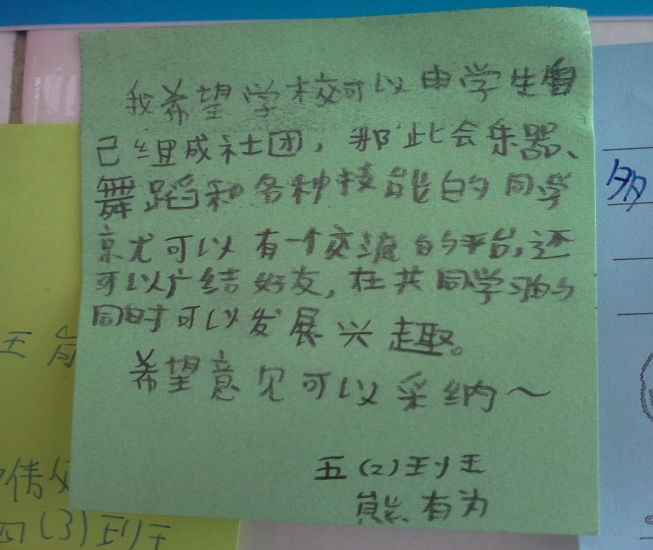 我希望学校可以由学生自
己组成社团，那些会乐器、
舞蹈和各种技能的同学
就可以有一个交流的平台,还
可以广结好友，在共同学习的
同时可以发展兴趣。
希望意见可以采纳～
五(2)班
熊有为
王
倩
四(3)班